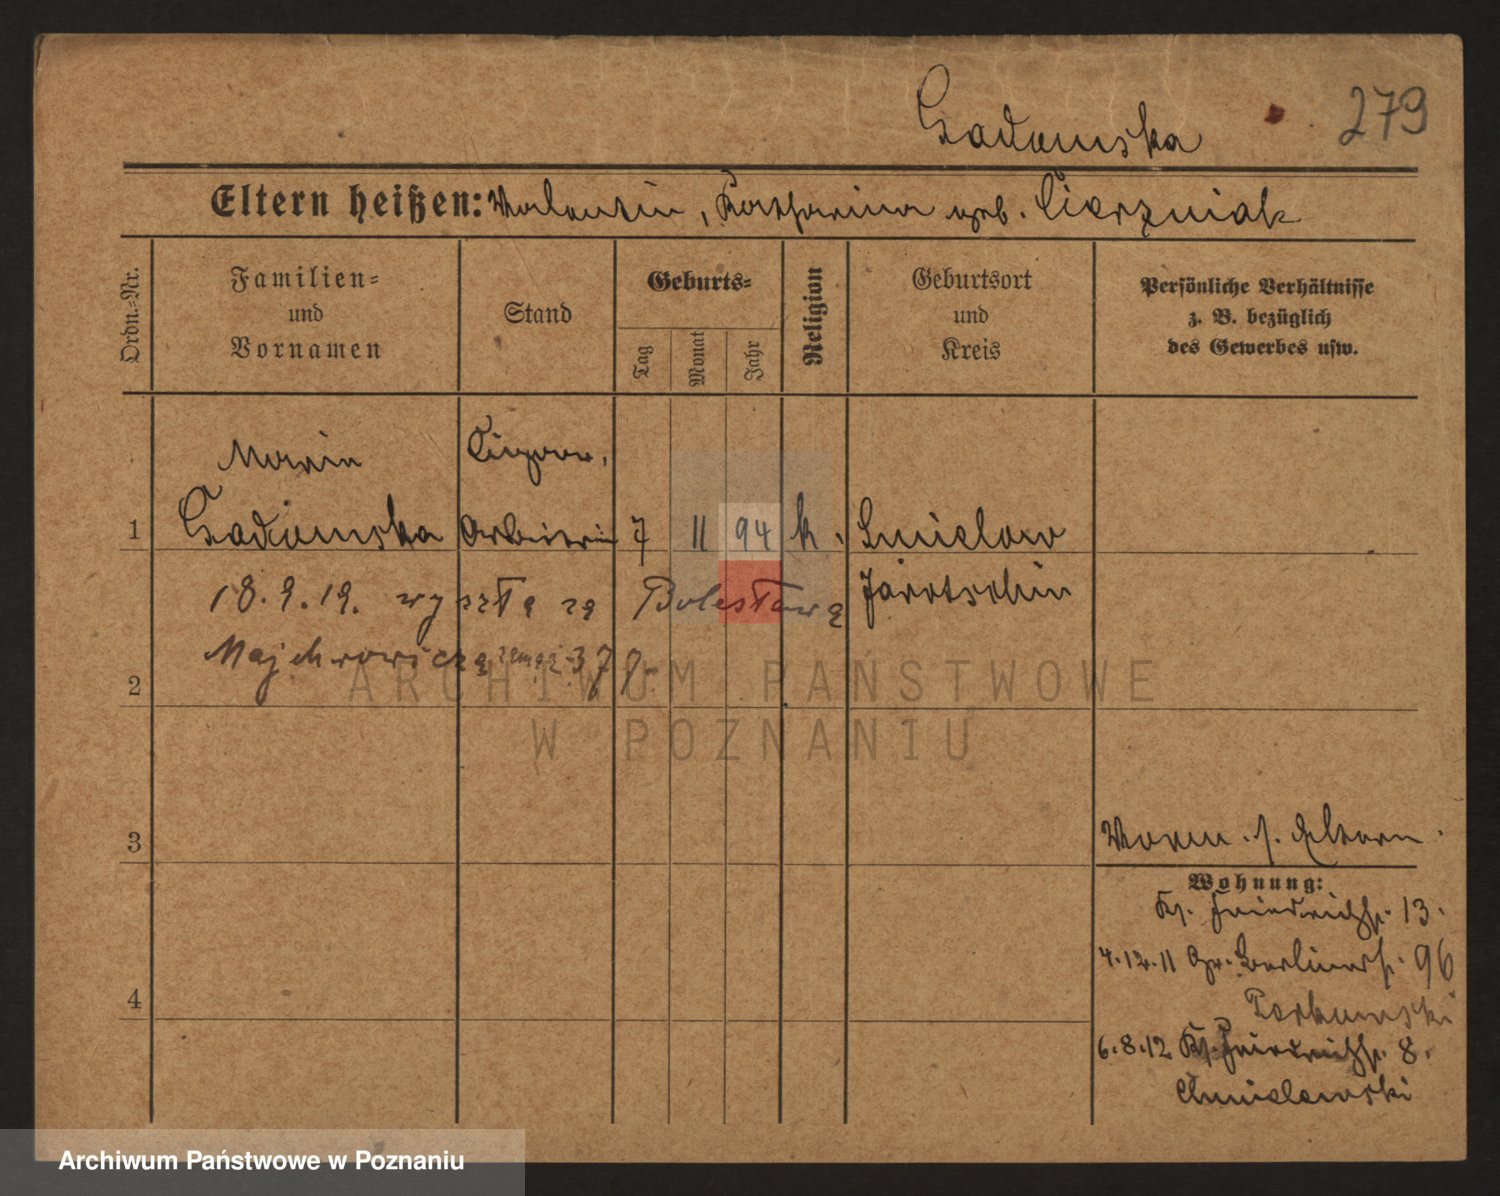 279
Gadomska
Eltern heißen: Valentin, Katharina geb. Cierzniak
Ordn.-Nr.
Familien-
und
Vornamen
Stand
Geburts-
Tag
Monat
Jahr
Religion
Geburtsort
und
Kreis
Persönliche Verhältnisse
z. B. bezüglich
des Gewerbes usw.
Maria Cigarr.
1 Gadomska Arbeiterin 7 11 94 k. Smielow
Jarotschin
18.9.19. wyszła za Bolesława
Majchrowicza zamąż
2
ARCHIWUM PAŃSTWOWE
W POZNANIU
3
Vorm. s. Eltern.
Wohnung:
Ks. Friedrichstr. 13.
4.12.11 Gr. Berlinerstr. 96
4
6.8.12 Ks. Friedrichstr. 8.
Chmielewski
Archiwum Państwowe w Poznaniu